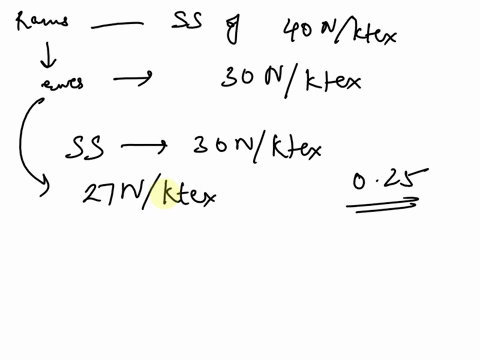 Rams — SS of 40 N/ktex
↓
ewes → 30 N/ktex
SS → 30 N/ktex
27 N/ktex 0.25